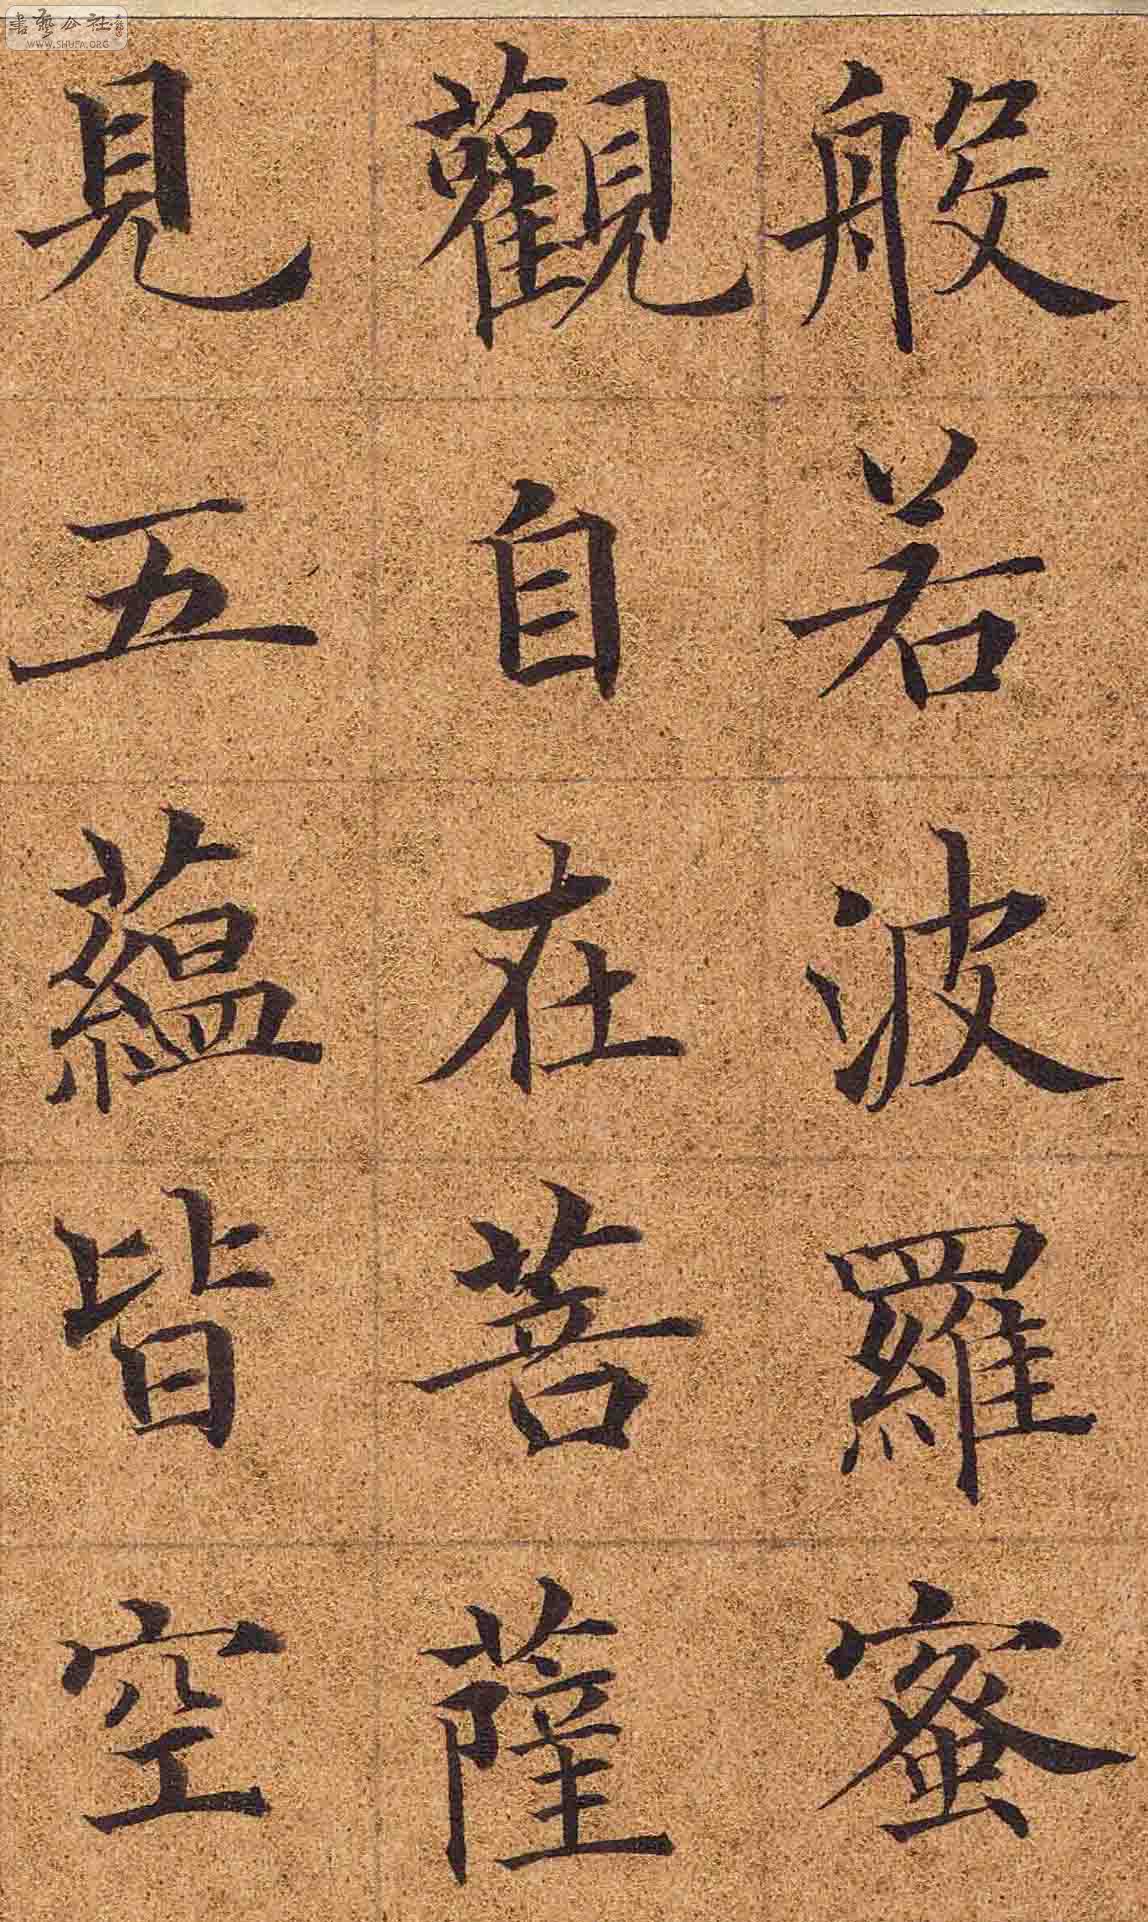 般若波羅蜜
觀自在菩薩
見五蘊皆空
書藝公社
WWW.SHUFA.ORG